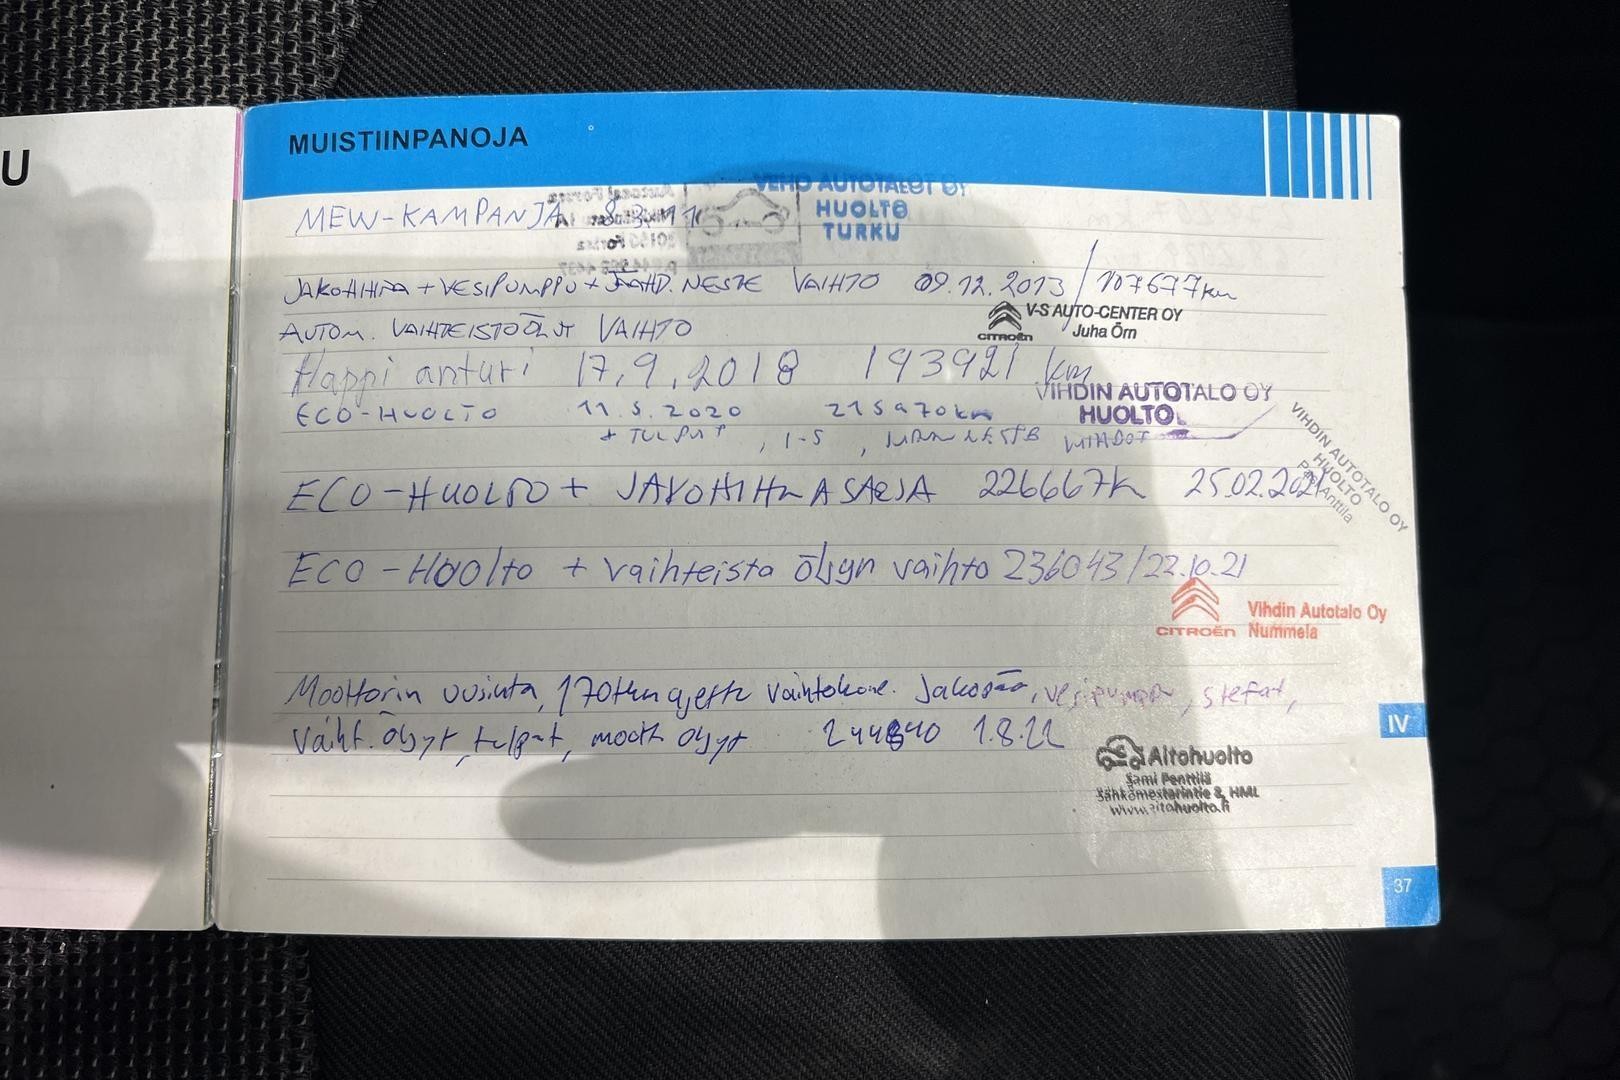 U
MUISTIINPANOJA
MEW-KAMPANJA 8.3.11
VEHO AUTOTALOT OY
HUOLTO
TURKU
JAKOHIHNA + VESIPUMPPU + JÄÄHD.NESTE VAIHTO 09.12.2013 / 107677km
AUTOM. VAIHTEISTOÖLJYT VAIHTO
CITROËN
V-S AUTO-CENTER OY
Juha Örn
Happi anturi 17.9.2018 193921 km
ECO-HUOLTO 11.5.2020 215970km
VIHDIN AUTOTALO OY
HUOLTO
+ TULPAT, 1-5,
ECO-HUOLTO + JAKOHIHNASARJA 226667k 25.02.2021
VIHDIN AUTOTALO OY
HUOLTO
Pasi Anttila
ECO-Huolto + vaihteisto öljyn vaihto 236043/22.10.21
CITROËN
Vihdin Autotalo Oy
Nummela
Moottorin uusinta, 170tkm ajettu vaihtokone. Jakopää, vesipumppu, stefat,
Vaiht. öljyt, tulpat, moott öljyt 244840 1.8.22
IV
Aitohuolto
Sami Penttilä
Sähkömestarintie 8, HML
www.aitohuolto.fi
37